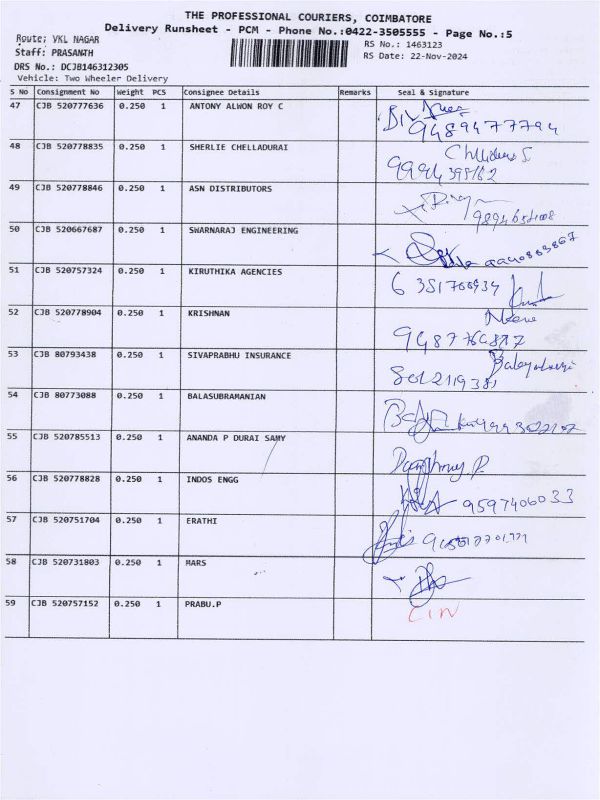 THE PROFESSIONAL COURIERS, COIMBATORE
Delivery Runsheet - PCM - Phone No.:0422-3505555 - Page No.:5
Route: VKL NAGAR
Staff: PRASANTH
RS No.: 1463123
RS Date: 22-Nov-2024
DRS No.: DCJB146312305
Vehicle: Two Wheeler Delivery
S No Consignment No Weight PCS Consignee Details Remarks Seal & Signature
47 CJB 520777636 0.250 1 ANTONY ALWON ROY C
9489477794
48 CJB 520778835 0.250 1 SHERLIE CHELLADURAI
49 CJB 520778846 0.250 1 ASN DISTRIBUTORS
50 CJB 520667687 0.250 1 SWARNARAJ ENGINEERING
51 CJB 520757324 0.250 1 KIRUTHIKA AGENCIES
52 CJB 520778904 0.250 1 KRISHNAN
53 CJB 80793438 0.250 1 SIVAPRABHU INSURANCE
54 CJB 80773088 0.250 1 BALASUBRAMANIAN
55 CJB 520785513 0.250 1 ANANDA P DURAI SAMY
56 CJB 520778828 0.250 1 INDOS ENGG
9597406033
57 CJB 520751704 0.250 1 ERATHI
58 CJB 520731803 0.250 1 MARS
59 CJB 520757152 0.250 1 PRABU.P